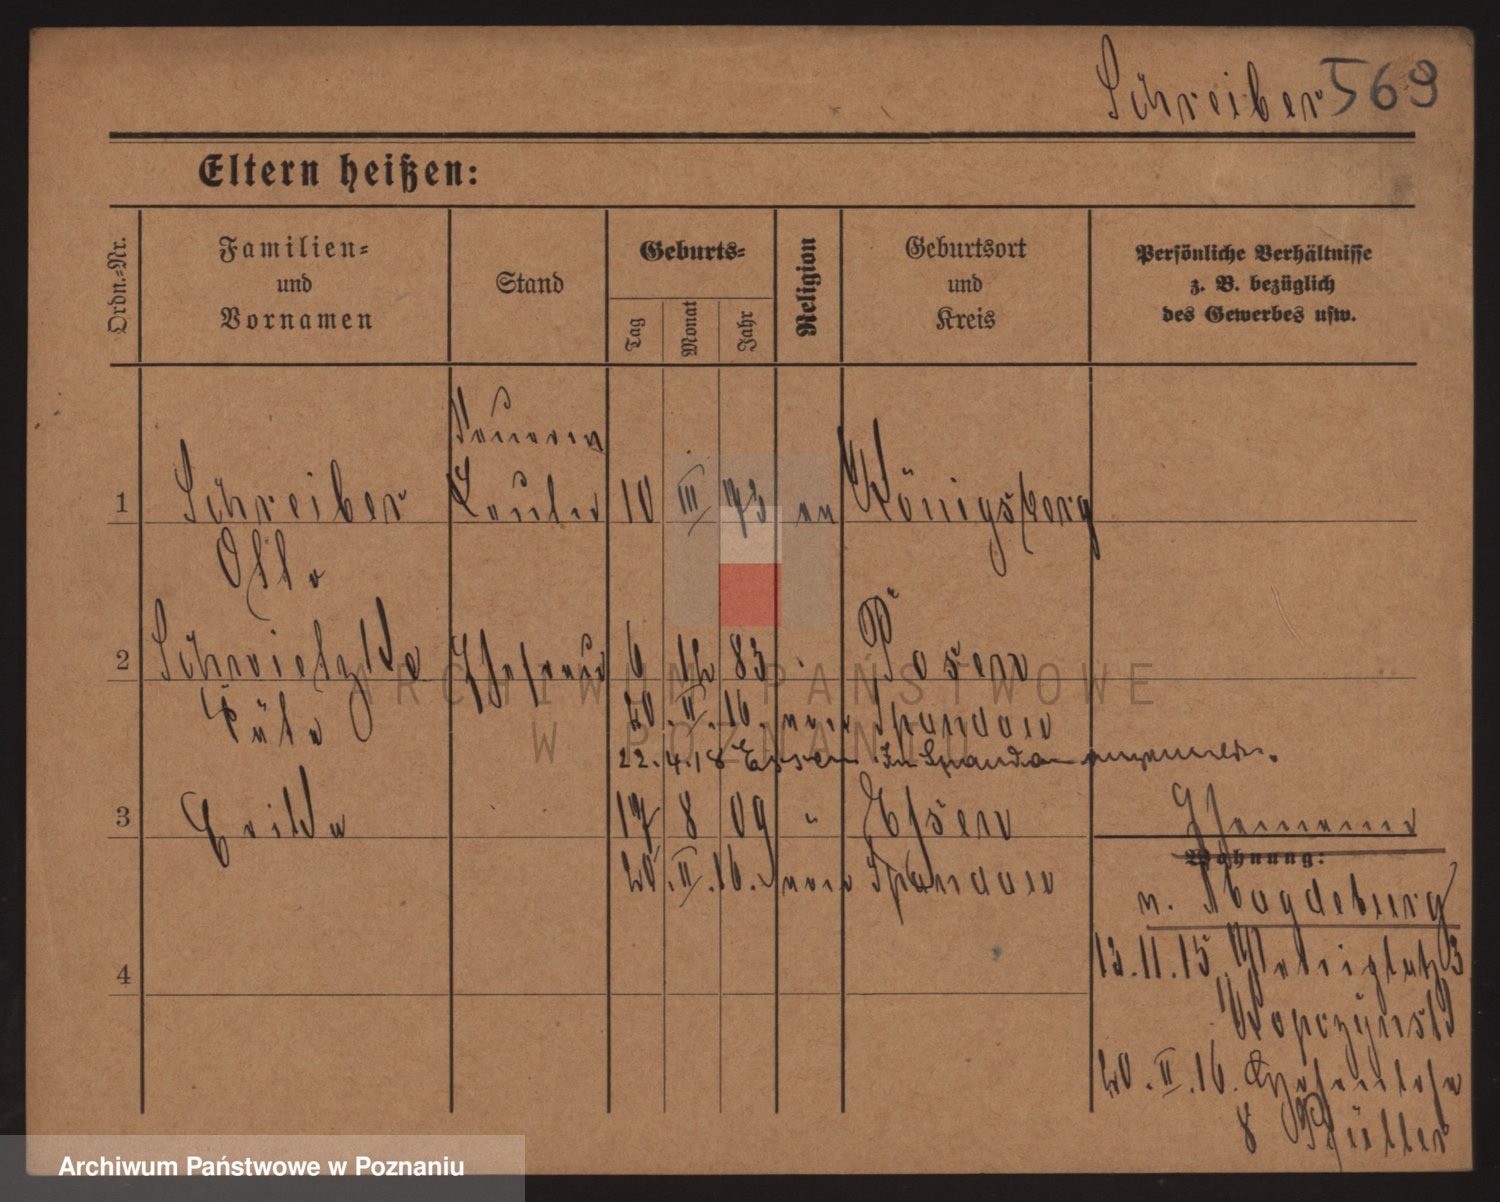 Schreiber 569
Eltern heißen:
Ordn.-Nr.
Familien-
und
Vornamen
Stand
Geburts-
Tag
Monat
Jahr
Religion
Geburtsort
und
Kreis
Persönliche Verhältnisse
z. B. bezüglich
des Gewerbes usw.
1 Schreiber 10 III 73 ev Königsberg
Otto
2 Ehefrau 6 12 83 " Posen
Käte 20. II. 16. nach Spandau
22.4.18 Essen In Spandau angemeldet.
3 17 8 09 " Essen
Wohnung:
20. II. 16. nach Spandau
v. Magdeburg
4
13.11.15. Petriplatz 3
20. II. 16. Hohenlohe
8 Müller
ARCHIWUM PAŃSTWOWE
W POZNANIU
Archiwum Państwowe w Poznaniu